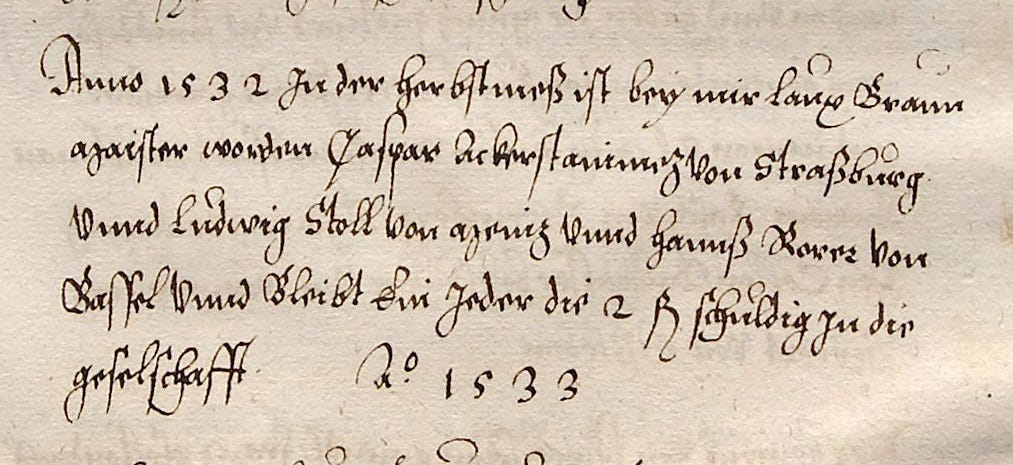 Anno 1532 In der herbstmeß ist bey mir laux Braun
Maister worden Caspar Ackerstainmez von Straßburg
Vnnd Ludwig Stoll von Meniz Vnnd hannß Rorer von
Bassel Vnnd Bleibt Ein Jeder die 2 ß schuldig In die
geselschafft Aº 1533